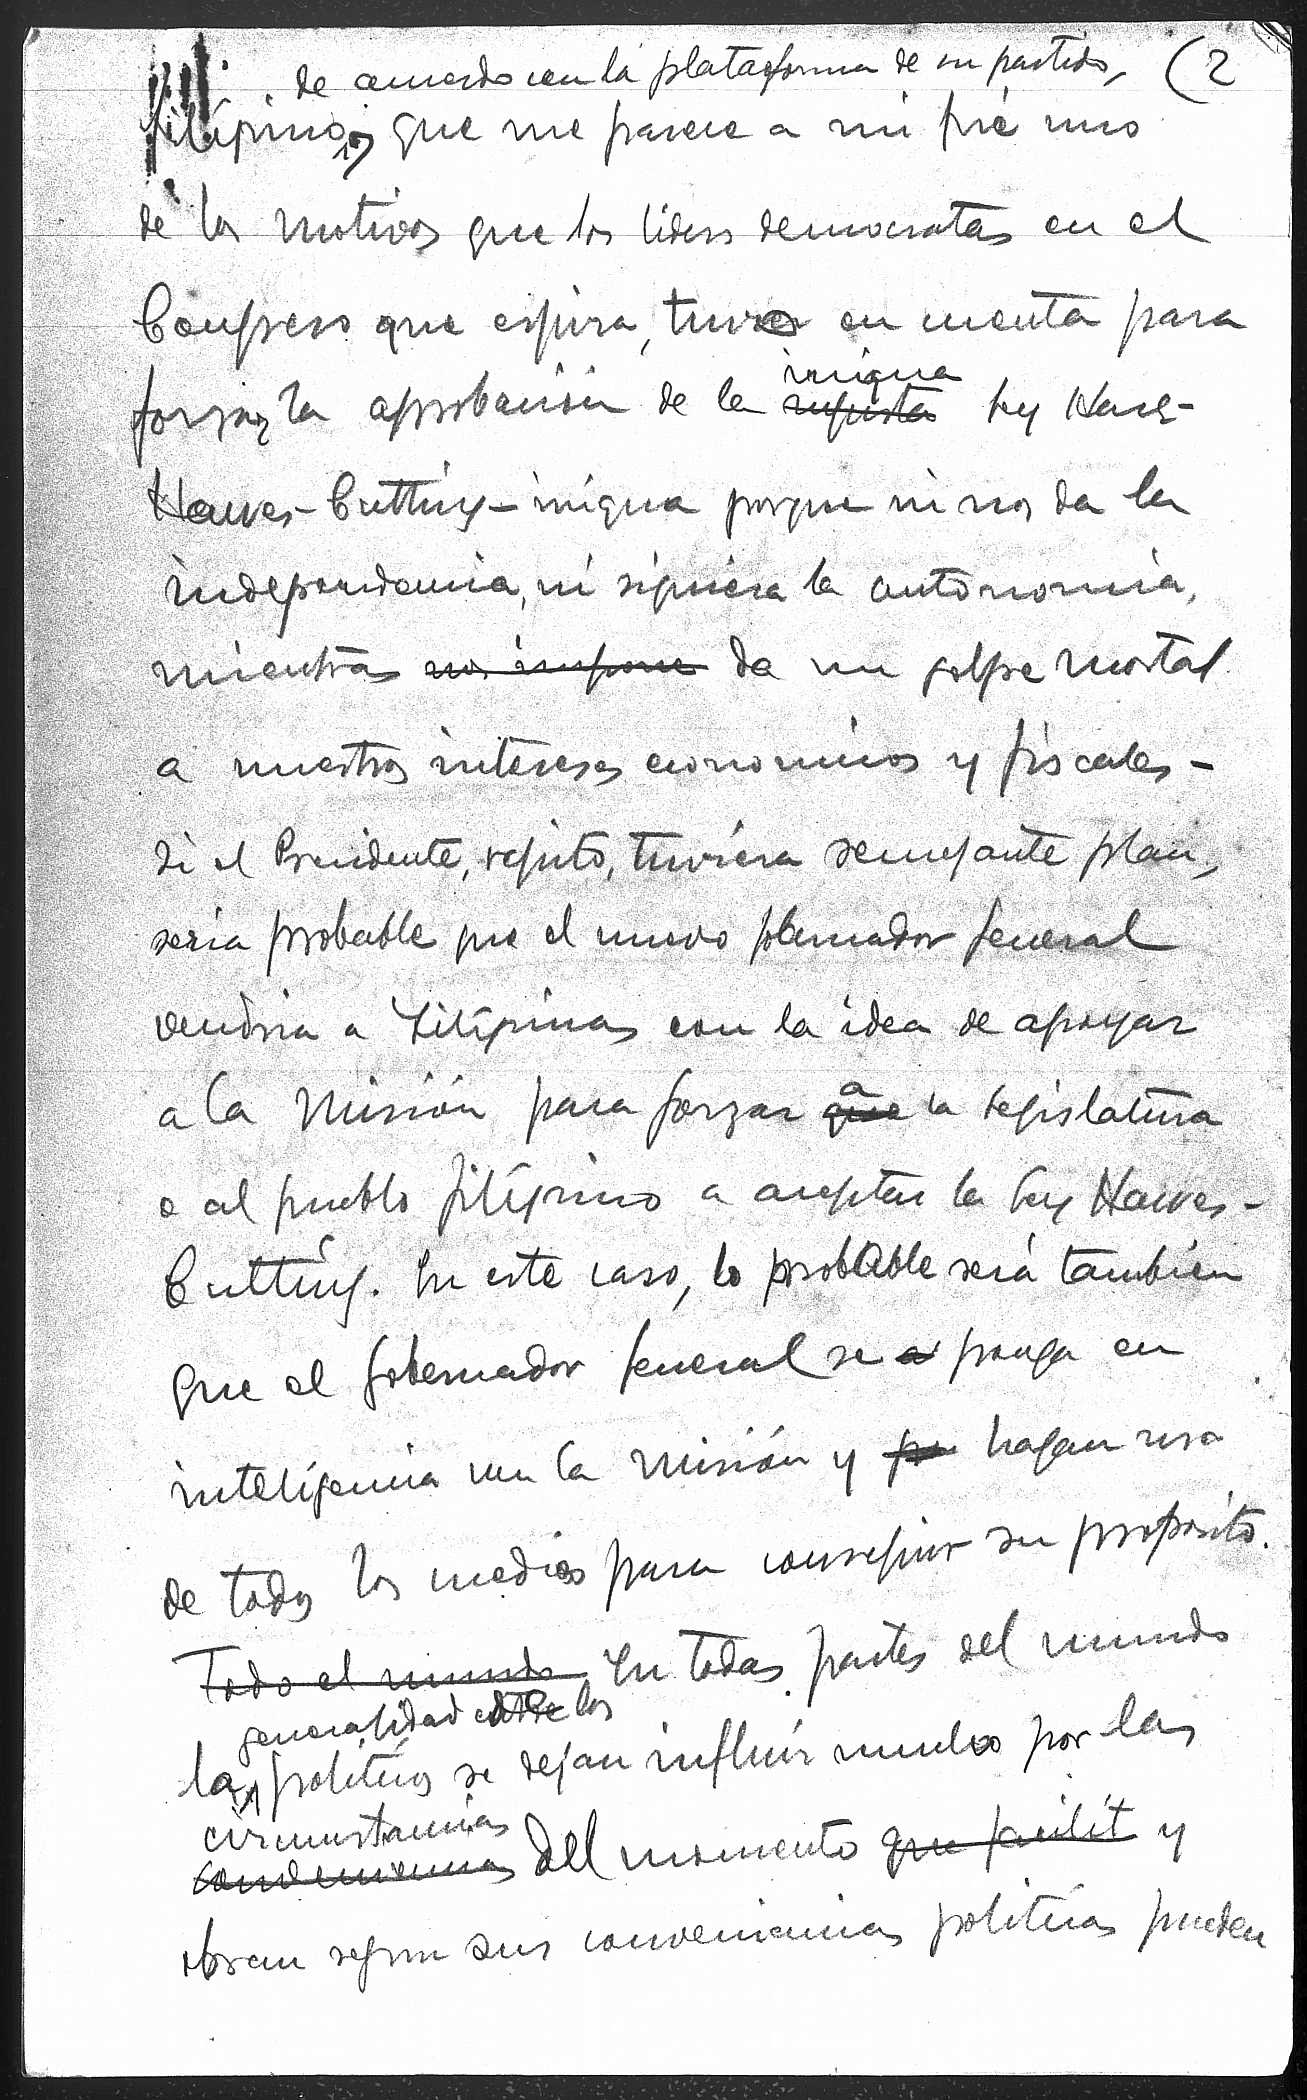 de acuerdo con la plataforma de su partido, (2
filipino, que me parece a mi fué uno
de los motivos que los líders democratas en el
Congreso que espira, tuvo en cuenta para
inigua
forzar la aprobación de la injusta ley Hare-
Hawes-Cutting - inigua porque ni nos da la
independencia, ni siquiera la autonomia,
mientras nos impone da un golpe mortal
a nuestros intereses economicos y fiscales -
si el Presidente, repito, tuviera semejante plan,
seria probable que el nuevo gobernador general
vendria a Filipinas con la idea de apoyar
a
a la Misión para forzar que la legislatura
o al pueblo filipino a aceptar la ley Hawes-
Cutting. En este caso, lo probable será también
que el gobernador general se a ponga en
inteligencia con la Misión y po hagan uso
de todos los medios para conseguir su proposito.
Todo el mundo En todas partes del mundo
generalidad de los
la politicos se dejan influir mucho por las
circunstancias
del momento que facilit y
obran segun sus conveniencias politicas pueden